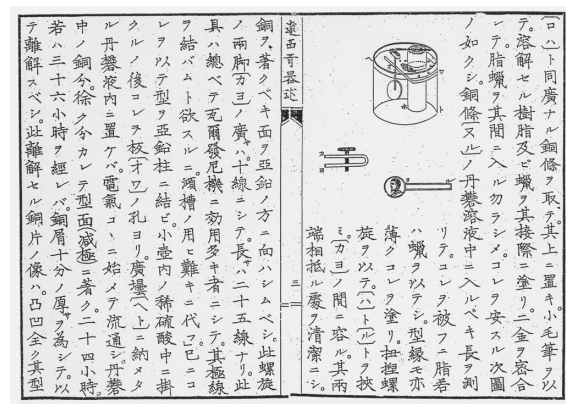 (ロハ)ト同廣ナル銅條ヲ取テ其上ニ置キ小毛筆ヲ以
テ溶解セル樹脂及ビ蠟ヲ其接際ニ塗リ。二金ヲ密合
シテ脂蠟ヲ其間ニ入ル勿ラシメ。コレヲ安スル次圖
ノ如クシ。銅條(ヌル)ノ丹礬溶液中ニ入ルベキ長ヲ測
リテ。コレヲ被フニ脂若
ハ蠟ヲ以テシ。型緣モ亦
薄クコレヲ塗リ。扭捏螺
旋ヲ以テ。(ハ)ト(ル)トヲ挾
ミ。(カヨ)ノ間ニ容ル。其兩
端相抵ル處ヲ清潔ニシ。
遠西奇器述
三
銅ヲ。著クベキ面ヲ亞鉛ノ方ニ向ハシムベシ。此螺旋
ノ兩脚(カヨ)ノ廣サハ十線ニシテ。長サハ二十五線ナリ。此
具ハ總ベテ瓦爾發尼機ニ効用多キ者ニシテ。其極線
ヲ結バムト欲スルニ。澒槽ノ用ヒ難キニ代フ。已ニコ
レヲ以テ型ヲ亞鉛柱ニ結ビ。小壺内ノ稀硫酸中ニ掛
クルノ後コレヲ板(オワ)ノ孔ヨリ。廣壜(ヘト)ニ納メタ
ル丹礬液内ニ置ケバ。電氣コヽニ始メテ流通シ。丹礬
中ノ銅分。徐クカレテ型面(減極)ニ著ク。二十四小時。
若ハ三十六小時ヲ經レバ。銅屑十分ノ厚サヲ為シテ。以
テ離解スベシ。此離解セル銅片ノ像ハ。凸凹全ク其型